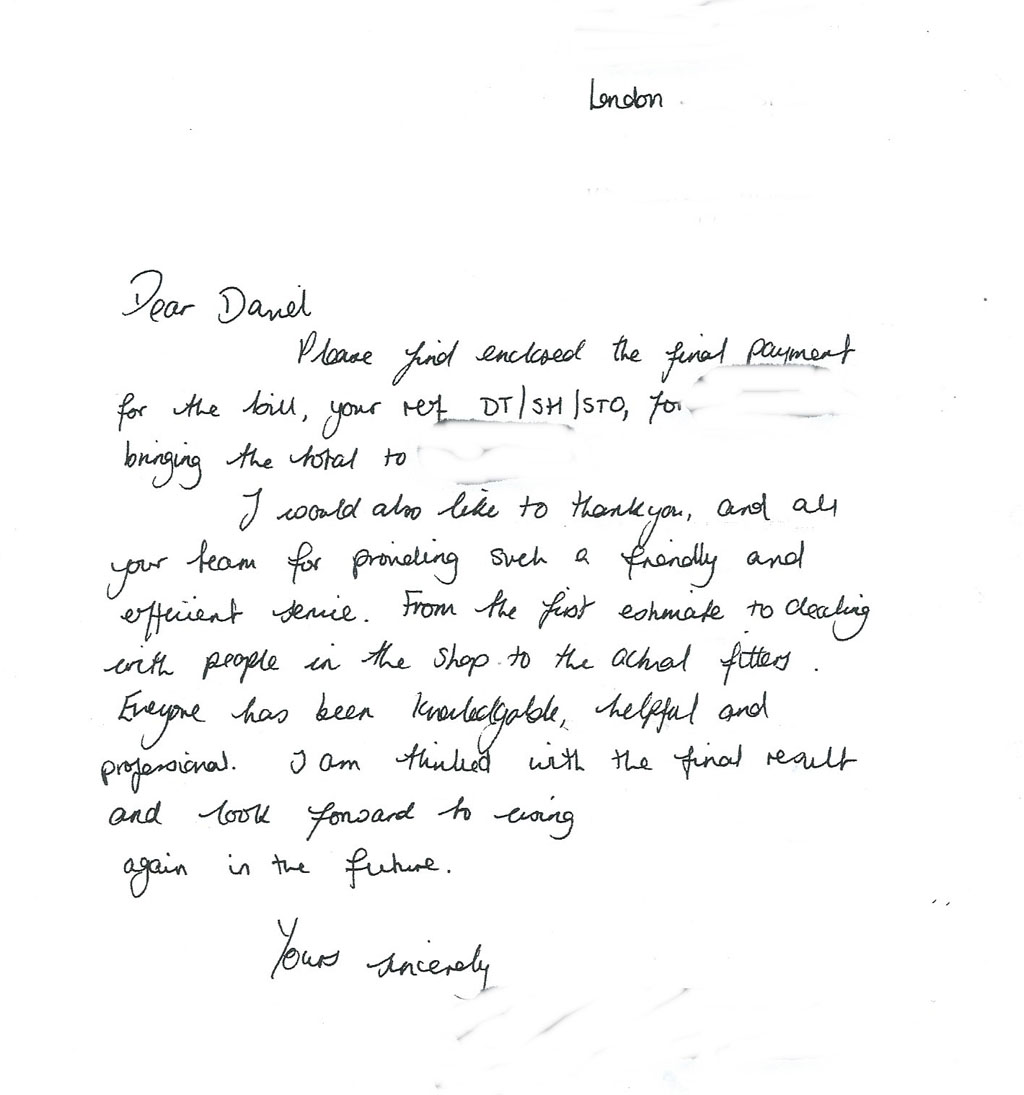 London
Dear Daniel
Please find enclosed the final payment
for the bill, your ref DT/SH/STO, for
bringing the total to
I would also like to thankyou, and all
your team for providing such a friendly and
efficient service. From the first estimate to dealing
with people in the shop to the actual fitters.
Everyone has been knowledgable, helpful and
professional. I am thrilled with the final result
and look forward to using
again in the future.
Yours sincerely